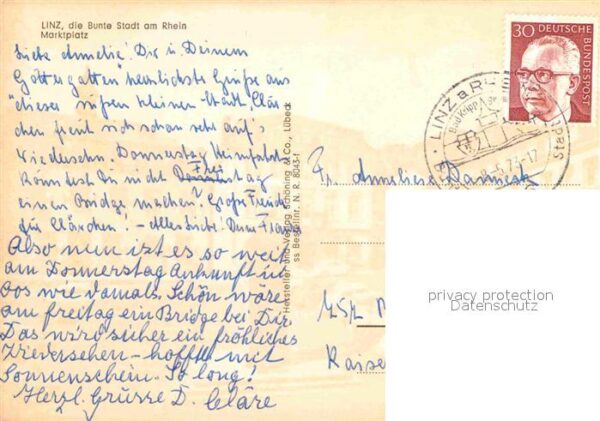 LINZ, die Bunte Stadt am Rhein
Marktplatz
Liebe Annelie! Dir u Deinem
Göttergatten herzlichste Grüße aus
dieser süßen kleinen Stadt. Clär
chen freut sich schon sehr auf's
Wiedersehn. Donnerstag Heimfahrt.
Könntest Du nicht Freitag
einen Bridge machen? Große Freude
für Clärchen! – Alles Liebe! Deine
Also nun ist es so weit
am Donnerstag Ankunft in
wie damals. Schön wäre
am Freitag ein Bridge bei Dir.
Das wird sicher ein fröhliches
Wiedersehen – hoffentl. mit
Sonnenschein. So long!
Herzl. Grüsse D. Cläre
Hersteller und Verlag Schöning & Co., Lübeck
ss Bestellnr. N. R. 8043-1
30 DEUTSCHE
BUNDESPOST
LINZ a. R
5.73-17
Stadt
Fr. Anneliese
Kaise
privacy protection
Datenschutz